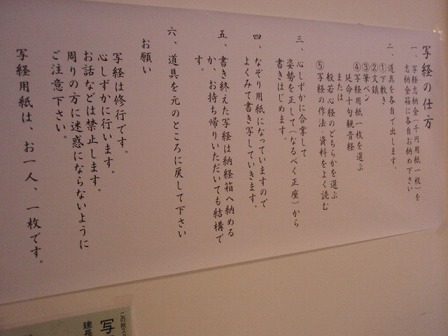 写経の仕方
一、写経志納金（千円用紙一枚）を
志納金箱に各自お納め下さい
二、道具を各自で出します。
①下敷き
②文鎮
③筆ペン
④写経用紙一枚を選ぶ
延命十句観音経
または
般若心経のどちらかを選ぶ
⑤写経の作法の資料をよく読む
三、心しずかに合掌して
姿勢を正して（なるべく正座）から
書きはじめます。
四、なぞり用紙になっていますので
よくみて書き写していきます。
五、書き終えた写経は納経箱へ納める
か、お持ち帰りいただいても結構で
す。
六、道具を元のところに戻して下さい
お願い
写経は修行です。
心しずかに行います。
お話などは禁止します。
周りの方に迷惑にならないように
ご注意下さい。
写経用紙は、お一人、一枚です。
写